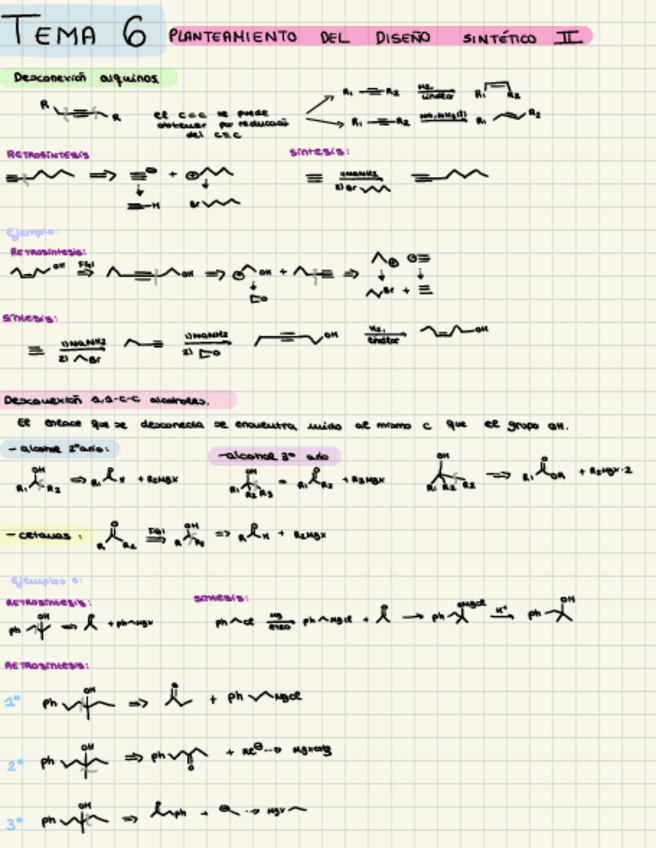 TEMA 6 PLANTEAMIENTO DEL DISEÑO SINTÉTICO II
Desconexión alquinos
R R
el C=C se puede obtener por reducción del C≡C
R1 R2 H2, Lindlar R1 R2
R1 R2 Na, NH3(l) R1 R2
Retrosíntesis síntesis:
⇒ + 1) NaNH2
H Br 2) Br
Ejemplo:
Retrosíntesis:
OH FGI ⇒ OH ⇒ OH + ⇒
Br +
síntesis:
1) NaNH2 1) NaNH2 OH H2, Lindlar OH
2) Br 2)
Desconexión C-C alcoholes.
El enlace que se desconecta se encuentra unido al mismo C que el grupo OH.
- alcohol 2º ario: - alcohol 3º ario
OH R1 R2 ⇒ R1 H + R2MgX
OH R1 R2 R3 = R1 R2 + R3MgX
OH R1 R2 R2 ⇒ R1 OR + R2MgX·2
- cetonas: O R R2 FGI ⇒ OH R R2 ⇒ O R H + R2MgX
Ejemplos:
Retrosíntesis: síntesis:
ph OH ⇒ + ph MgX
ph Cl Mg ph MgCl + → ph OMgCl H+ ph OH
Retrosíntesis:
1º ph OH ⇒ O + ph MgCl
2º ph OH ⇒ ph O +
3º ph OH ⇒ ph + MgX